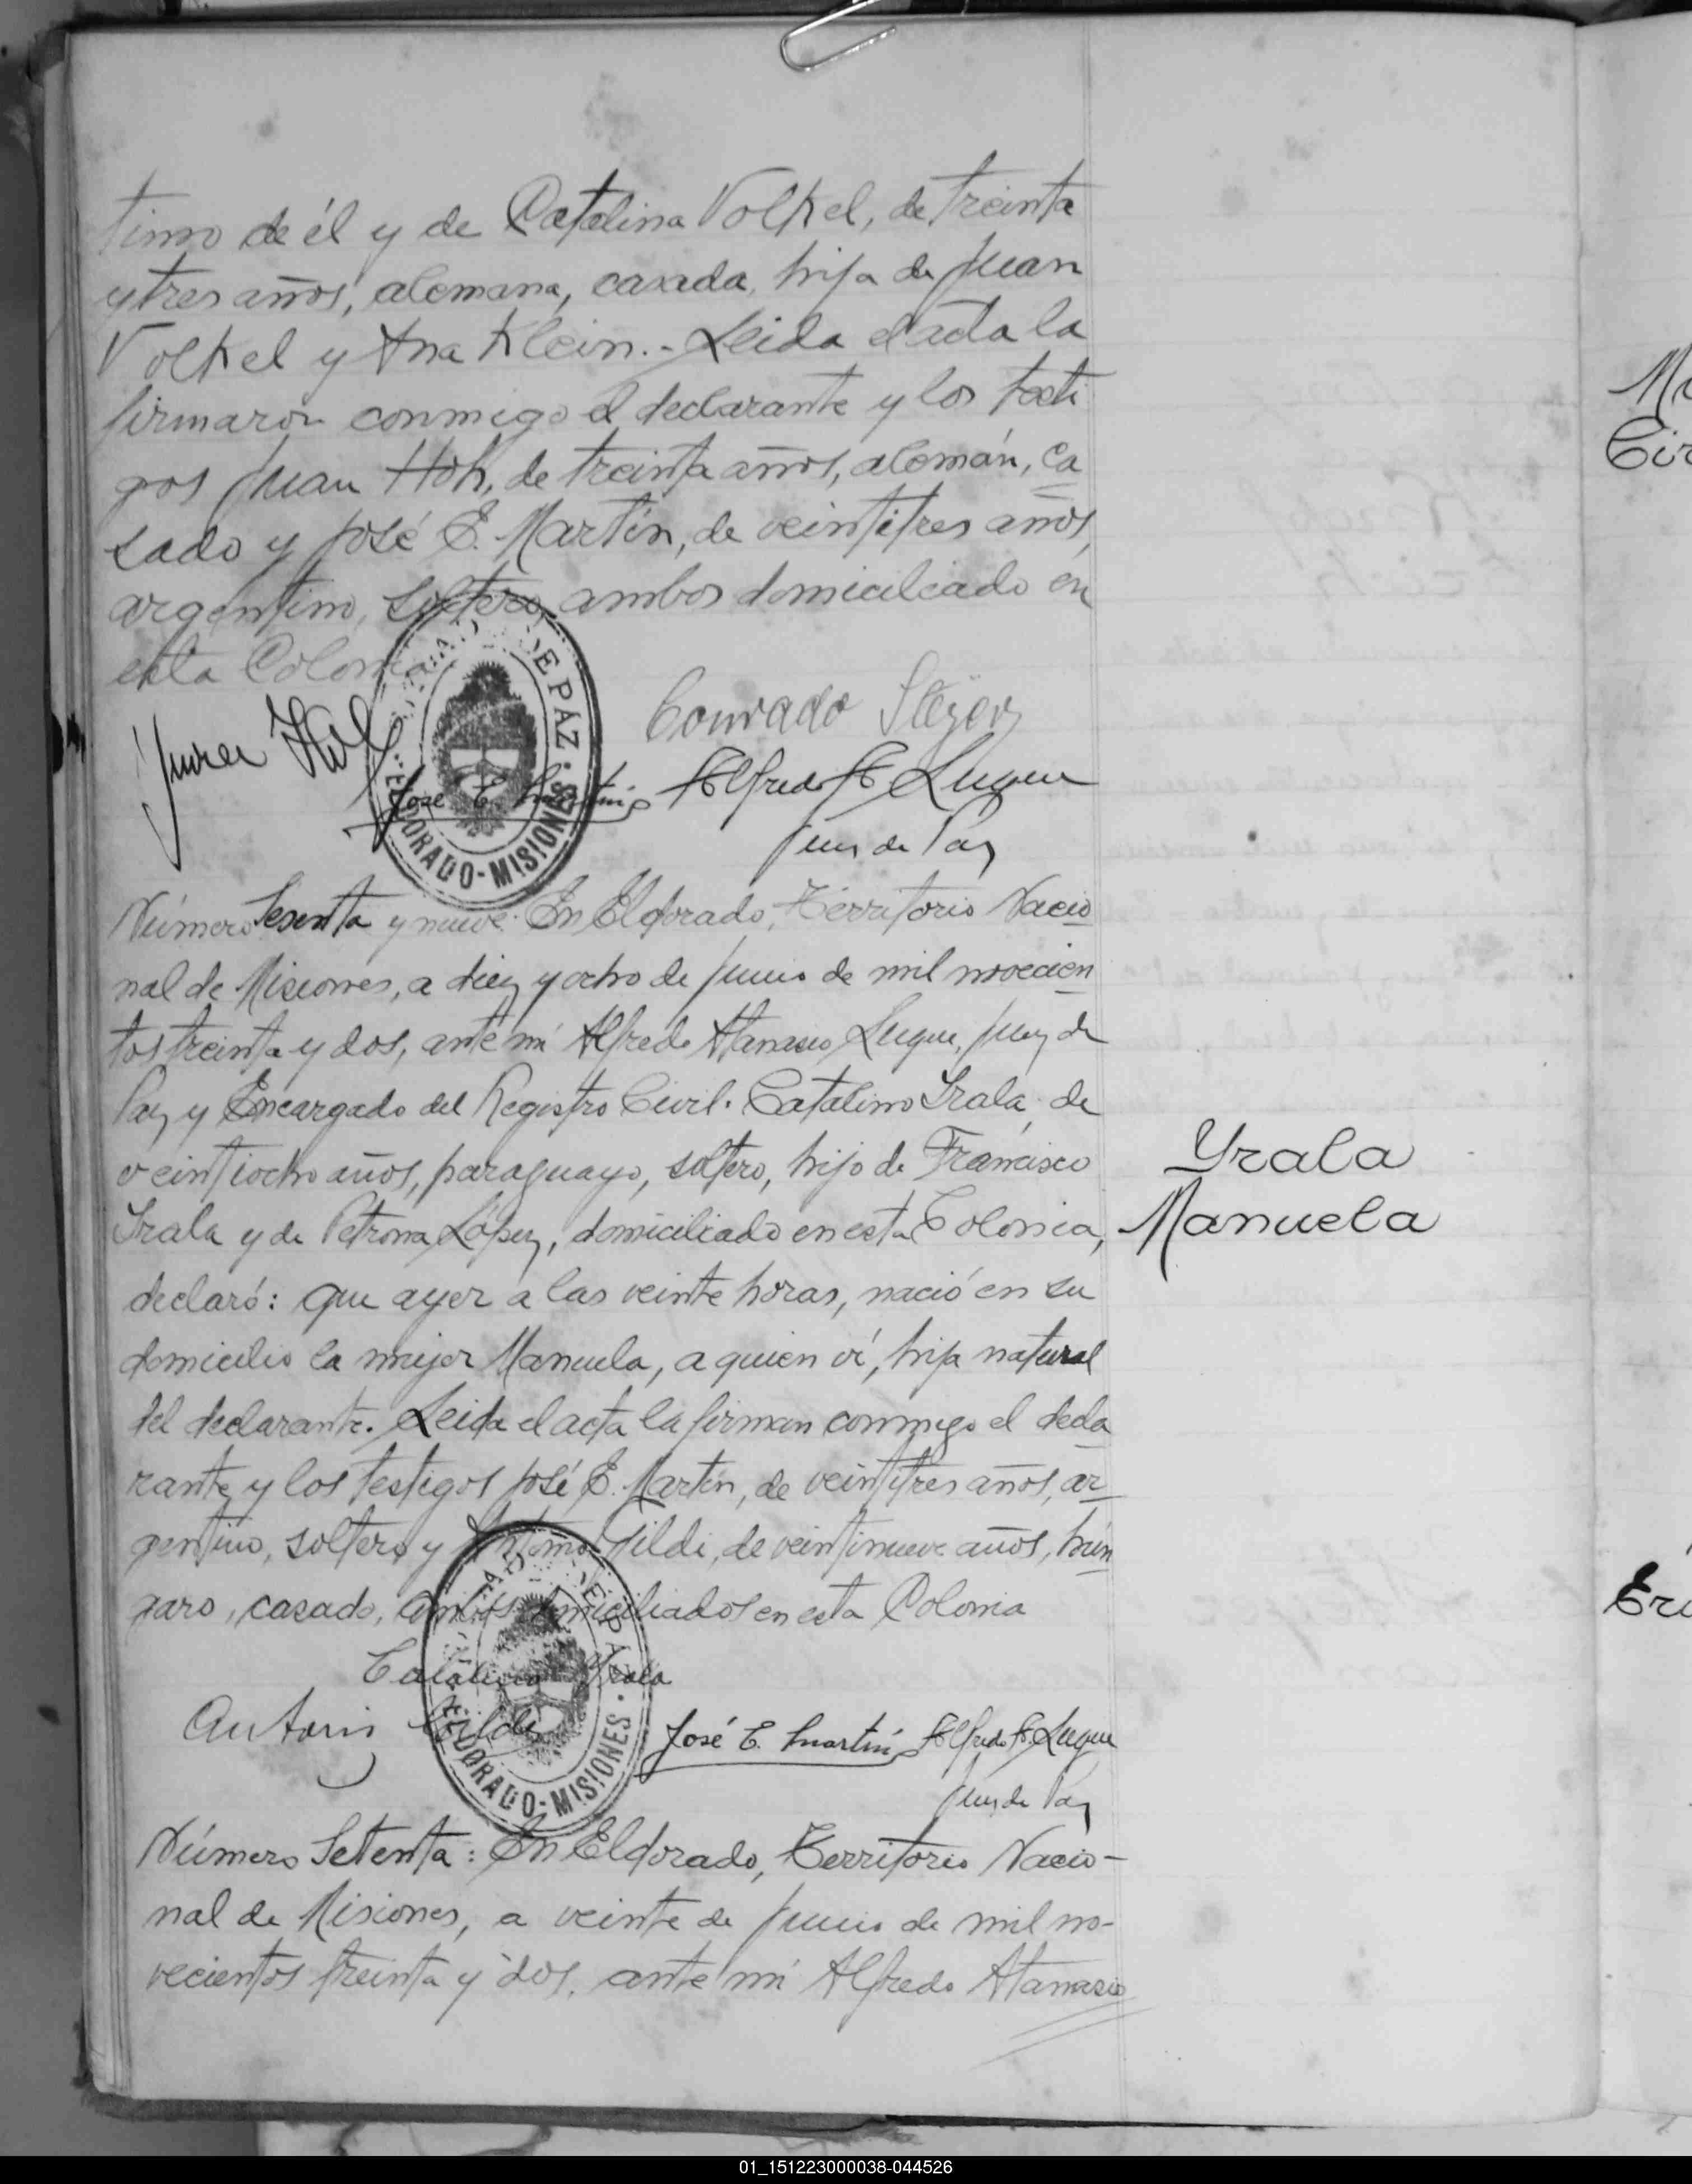 timo de él y de Catalina Volkel, de treinta
y tres años, alemana, casada, hija de Juan
Volkel y Ana Klein.- Leida el acta la
firmaron conmigo el declarante y los testi
gos Juan Hoh, de treinta años, alemán, ca
sado y José E. Martín, de veintitres años,
argentino, soltero, ambos domiciliado en
esta Colonia
Conrado
José E. Martín Alfredo A. Luque
Juez de Paz
DE PAZ · ELDORADO-MISIONES
Número Sesenta y nueve: En Eldorado, Territorio Nacio
nal de Misiones, a diez y ocho de Junio de mil novecien
tos treinta y dos, ante mí Alfredo Atanasio Luque, Juez de
Paz y Encargado del Registro Civil. Catalino Irala, de
veintiocho años, paraguayo, soltero, hijo de Francisco
Irala y de Petrona López, domiciliado en esta Colonia,
Yrala
Manuela
declaró: que ayer a las veinte horas, nació en su
domicilio la mujer Manuela, a quien ví, hija natural
del declarante. Leida el acta la firman conmigo el decla
rante y los testigos José E. Martín, de veintitres años, ar
gentino, soltero y Antonio Gildi, de veintinueve años, hún
garo, casado, ambos domiciliados en esta Colonia
Catalino Yrala
José E. Martín Alfredo A. Luque
Juez de Paz
DE PAZ · ELDORADO-MISIONES
Número Setenta: En Eldorado, Territorio Nacio-
nal de Misiones, a veinte de Junio de mil no-
vecientos treinta y dos, ante mí Alfredo Atanasio
01_151223000038-044526